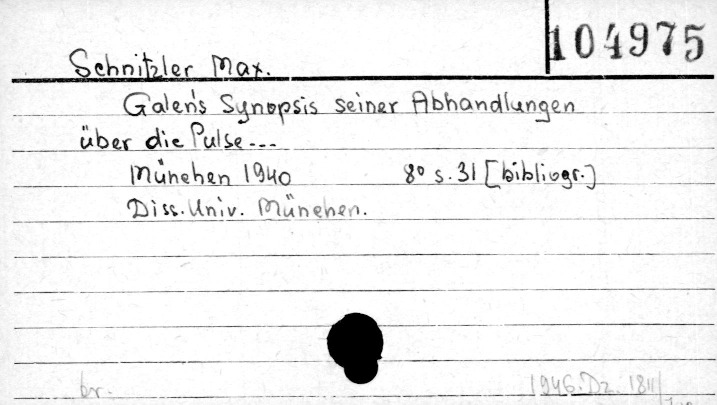 104975
Schnitzler Max.
Galen's Synopsis seiner Abhandlungen
über die Pulse---
München 1940 8° s. 31 [bibliogr.]
Diss. Univ. München.
br. 1946. Dz. 1811/